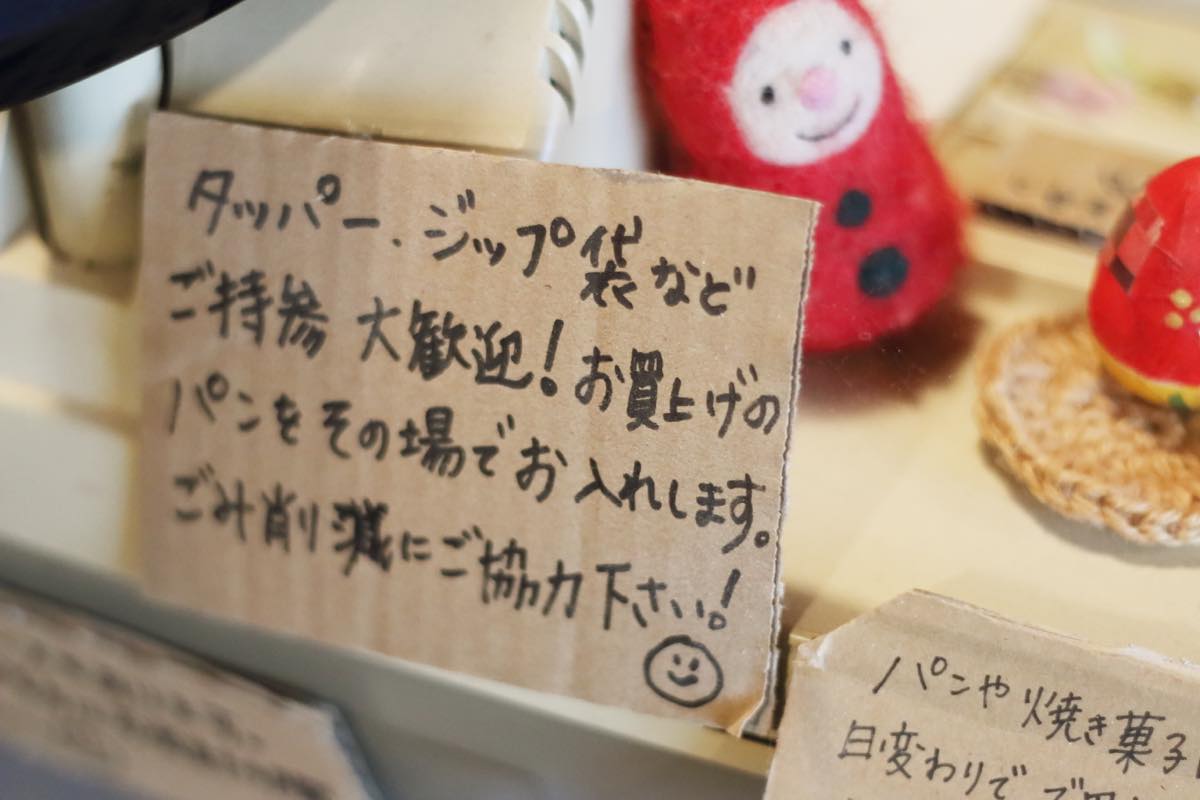 タッパー、ジップ袋など
ご特参 大歓迎!お買上げの
パンをその場でお入れします。
ごみ削減にご協力下さい!
パンや焼き菓子
日変わりで